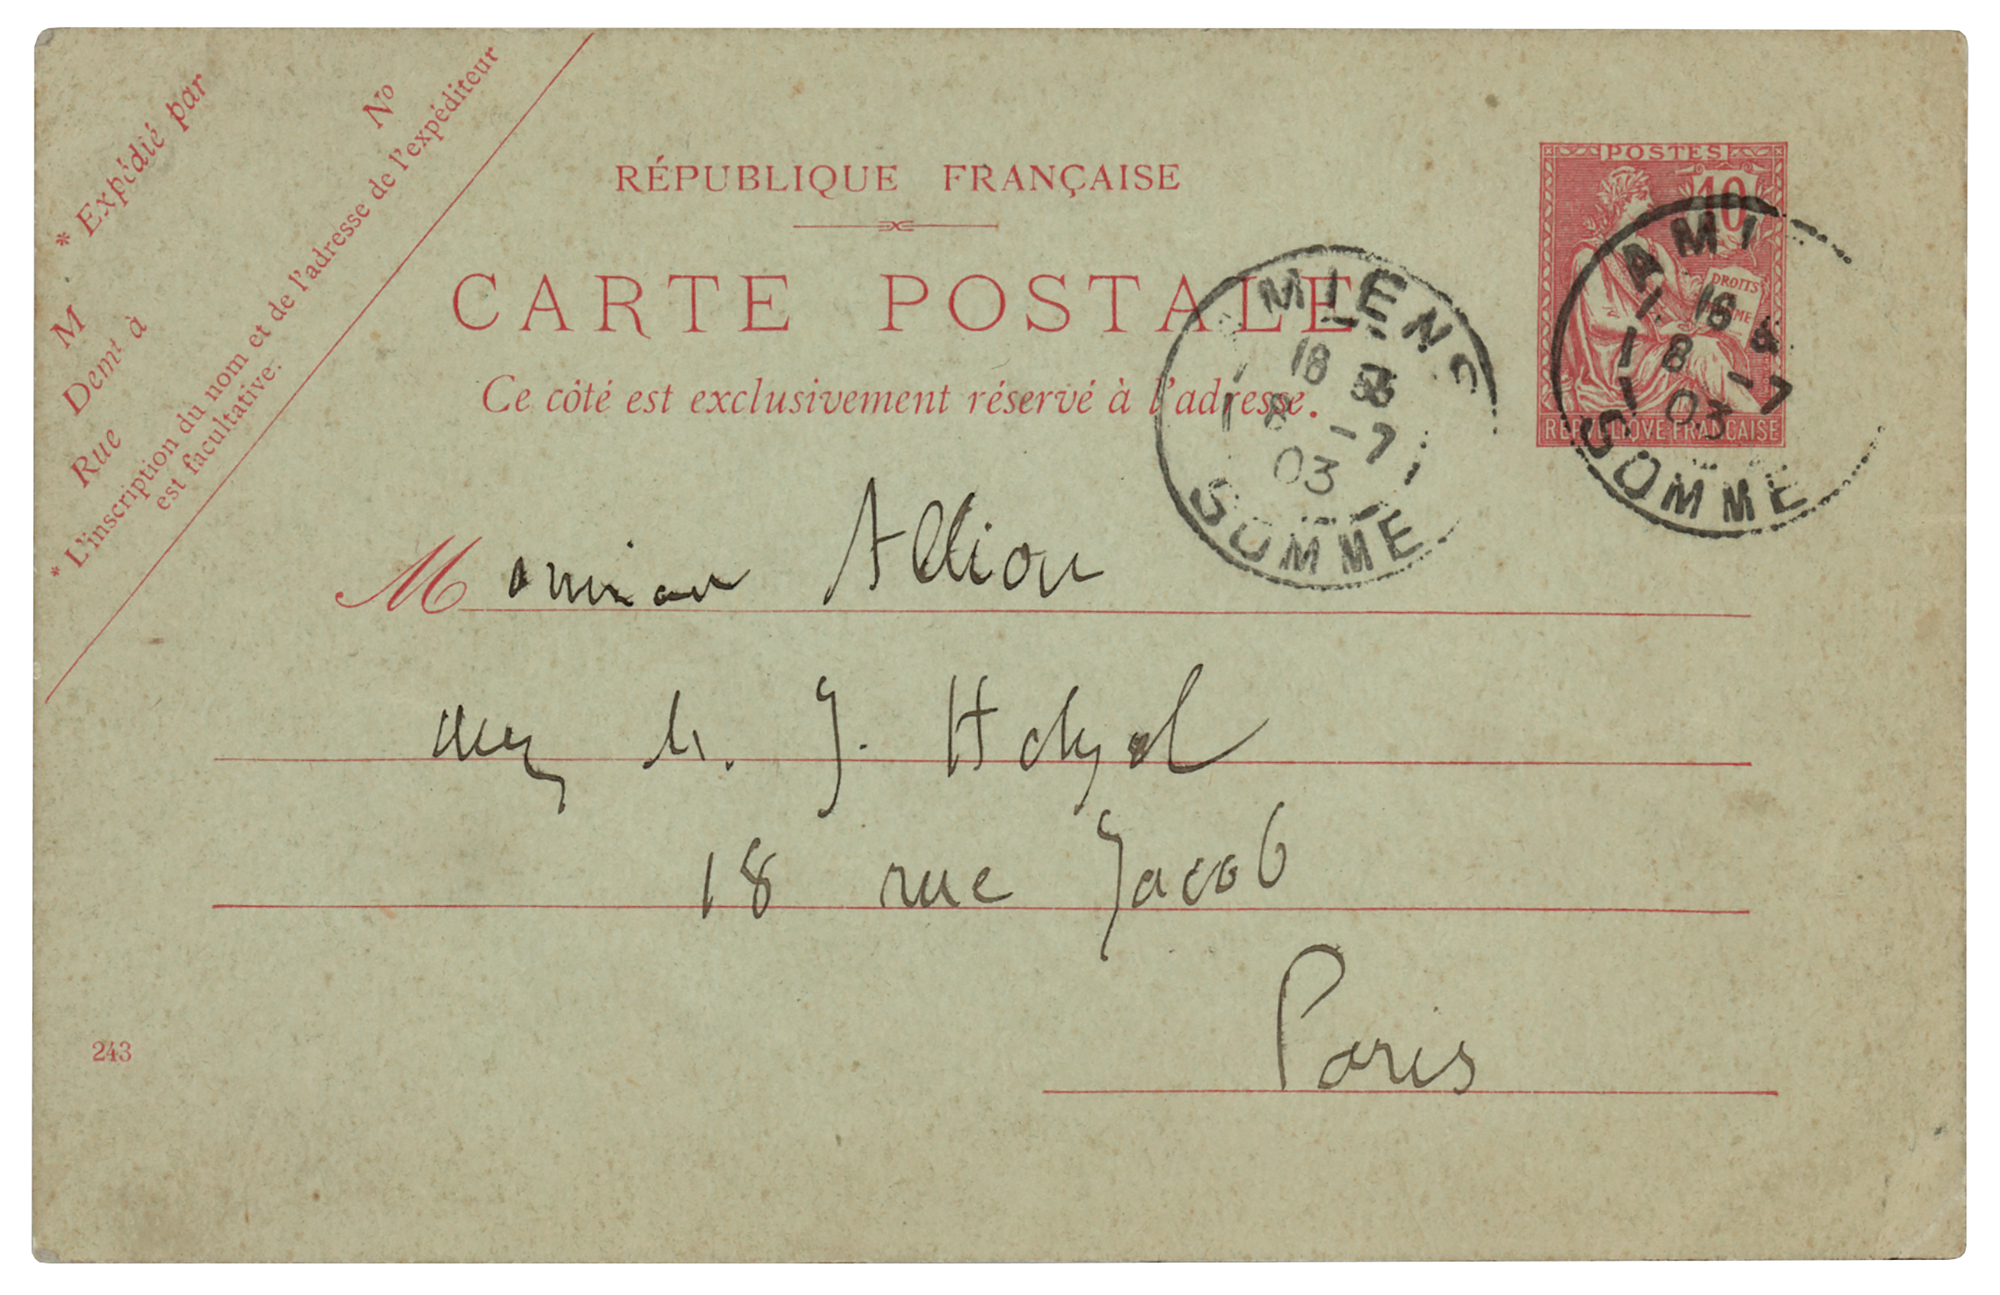 * Expédié par
M
Nº
Demt à
Rue
* L'inscription du nom et de l'adresse de l'expéditeur
est facultative.
RÉPUBLIQUE FRANÇAISE
CARTE POSTALE
Ce côté est exclusivement réservé à l'adresse.
POSTES
10
DROITS
ME
REPUBLIQVE FRANÇAISE
AMI
16
8 -7
03
SOMME
MIENS
18
8 -7
03
SOMME
Monsieur Allion
chez M. J. Hetzel
18 rue Jacob
Paris
243